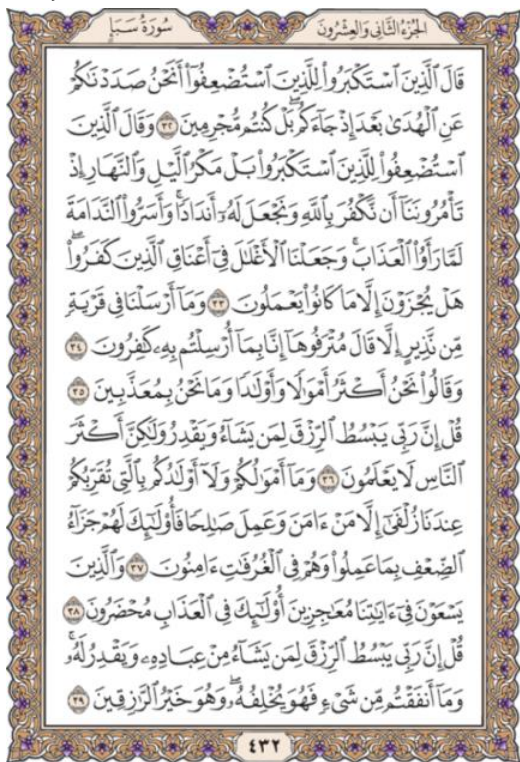 الجزء الثاني والعشرون سورة سبإ
قَالَ ٱلَّذِينَ ٱسْتَكْبَرُوا۟ لِلَّذِينَ ٱسْتُضْعِفُوٓا۟ أَنَحْنُ صَدَدْنَٰكُمْ
عَنِ ٱلْهُدَىٰ بَعْدَ إِذْ جَآءَكُم ۖ بَلْ كُنتُم مُّجْرِمِينَ ٣٢ وَقَالَ ٱلَّذِينَ
ٱسْتُضْعِفُوا۟ لِلَّذِينَ ٱسْتَكْبَرُوا۟ بَلْ مَكْرُ ٱلَّيْلِ وَٱلنَّهَارِ إِذْ
تَأْمُرُونَنَآ أَن نَّكْفُرَ بِٱللَّهِ وَنَجْعَلَ لَهُۥٓ أَندَادًا ۚ وَأَسَرُّوا۟ ٱلنَّدَامَةَ
لَمَّا رَأَوُا۟ ٱلْعَذَابَ ۚ وَجَعَلْنَا ٱلْأَغْلَٰلَ فِىٓ أَعْنَاقِ ٱلَّذِينَ كَفَرُوا۟ ۖ
هَلْ يُجْزَوْنَ إِلَّا مَا كَانُوا۟ يَعْمَلُونَ ٣٣ وَمَآ أَرْسَلْنَا فِى قَرْيَةٍ
مِّن نَّذِيرٍ إِلَّا قَالَ مُتْرَفُوهَآ إِنَّا بِمَآ أُرْسِلْتُم بِهِۦ كَٰفِرُونَ ٣٤
وَقَالُوا۟ نَحْنُ أَكْثَرُ أَمْوَٰلًا وَأَوْلَٰدًا وَمَا نَحْنُ بِمُعَذَّبِينَ ٣٥
قُلْ إِنَّ رَبِّى يَبْسُطُ ٱلرِّزْقَ لِمَن يَشَآءُ وَيَقْدِرُ وَلَٰكِنَّ أَكْثَرَ
ٱلنَّاسِ لَا يَعْلَمُونَ ٣٦ وَمَآ أَمْوَٰلُكُمْ وَلَآ أَوْلَٰدُكُم بِٱلَّتِى تُقَرِّبُكُمْ
عِندَنَا زُلْفَىٰٓ إِلَّا مَنْ ءَامَنَ وَعَمِلَ صَٰلِحًا فَأُو۟لَٰٓئِكَ لَهُمْ جَزَآءُ
ٱلضِّعْفِ بِمَا عَمِلُوا۟ وَهُمْ فِى ٱلْغُرُفَٰتِ ءَامِنُونَ ٣٧ وَٱلَّذِينَ
يَسْعَوْنَ فِىٓ ءَايَٰتِنَا مُعَٰجِزِينَ أُو۟لَٰٓئِكَ فِى ٱلْعَذَابِ مُحْضَرُونَ ٣٨
قُلْ إِنَّ رَبِّى يَبْسُطُ ٱلرِّزْقَ لِمَن يَشَآءُ مِنْ عِبَادِهِۦ وَيَقْدِرُ لَهُۥ ۚ
وَمَآ أَنفَقْتُم مِّن شَىْءٍ فَهُوَ يُخْلِفُهُۥ ۖ وَهُوَ خَيْرُ ٱلرَّٰزِقِينَ ٣٩
٤٣٢